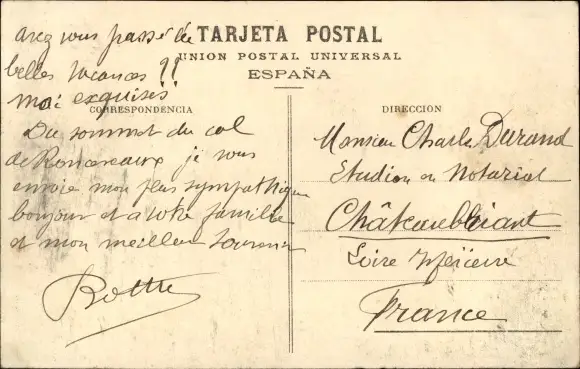 avez vous passé de
belles vacances ??
moi exquises
TARJETA POSTAL
UNION POSTAL UNIVERSAL
ESPAÑA
CORRESPONDENCIA
Du sommet du col
de Roncevaux je vous
envoie mon plus sympathique
bonjour et a votre famille
et mon meilleur souvenir
DIRECCION
Monsieur Charles Durand
Notariat
Châteaubriant
Loire Inférieure
France